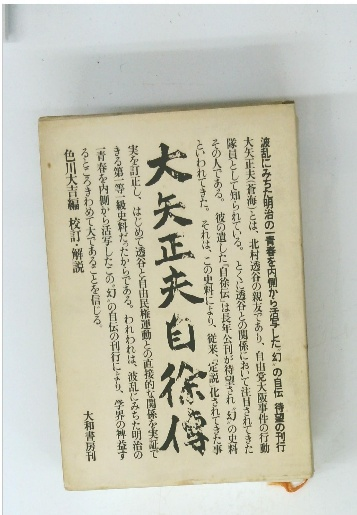 波乱にみちた明治の一青春を内側から活写した“幻”の自伝 待望の刊行
大矢正夫(蒼海)とは、北村透谷の親友であり、自由党大阪事件の行動
隊員として知られている。とくに透谷との関係において注目されてきた
その人である。彼の遺した「自徐伝」は長年公刊が待望され“幻”の史料
といわれてきた。それは、この史料により、従来、定説化されてきた事
大矢正夫自徐傳
実を訂正し、はじめて透谷と自由民権運動との直接的な関係を実証で
きる第一等級史料だったからである。われわれは、波乱にみちた明治の
一青春を内側から活写したこの“幻”の自伝の刊行により、学界の裨益す
るところきわめて大であることを信じる。
色川大吉編 校訂・解説
大和書房刊